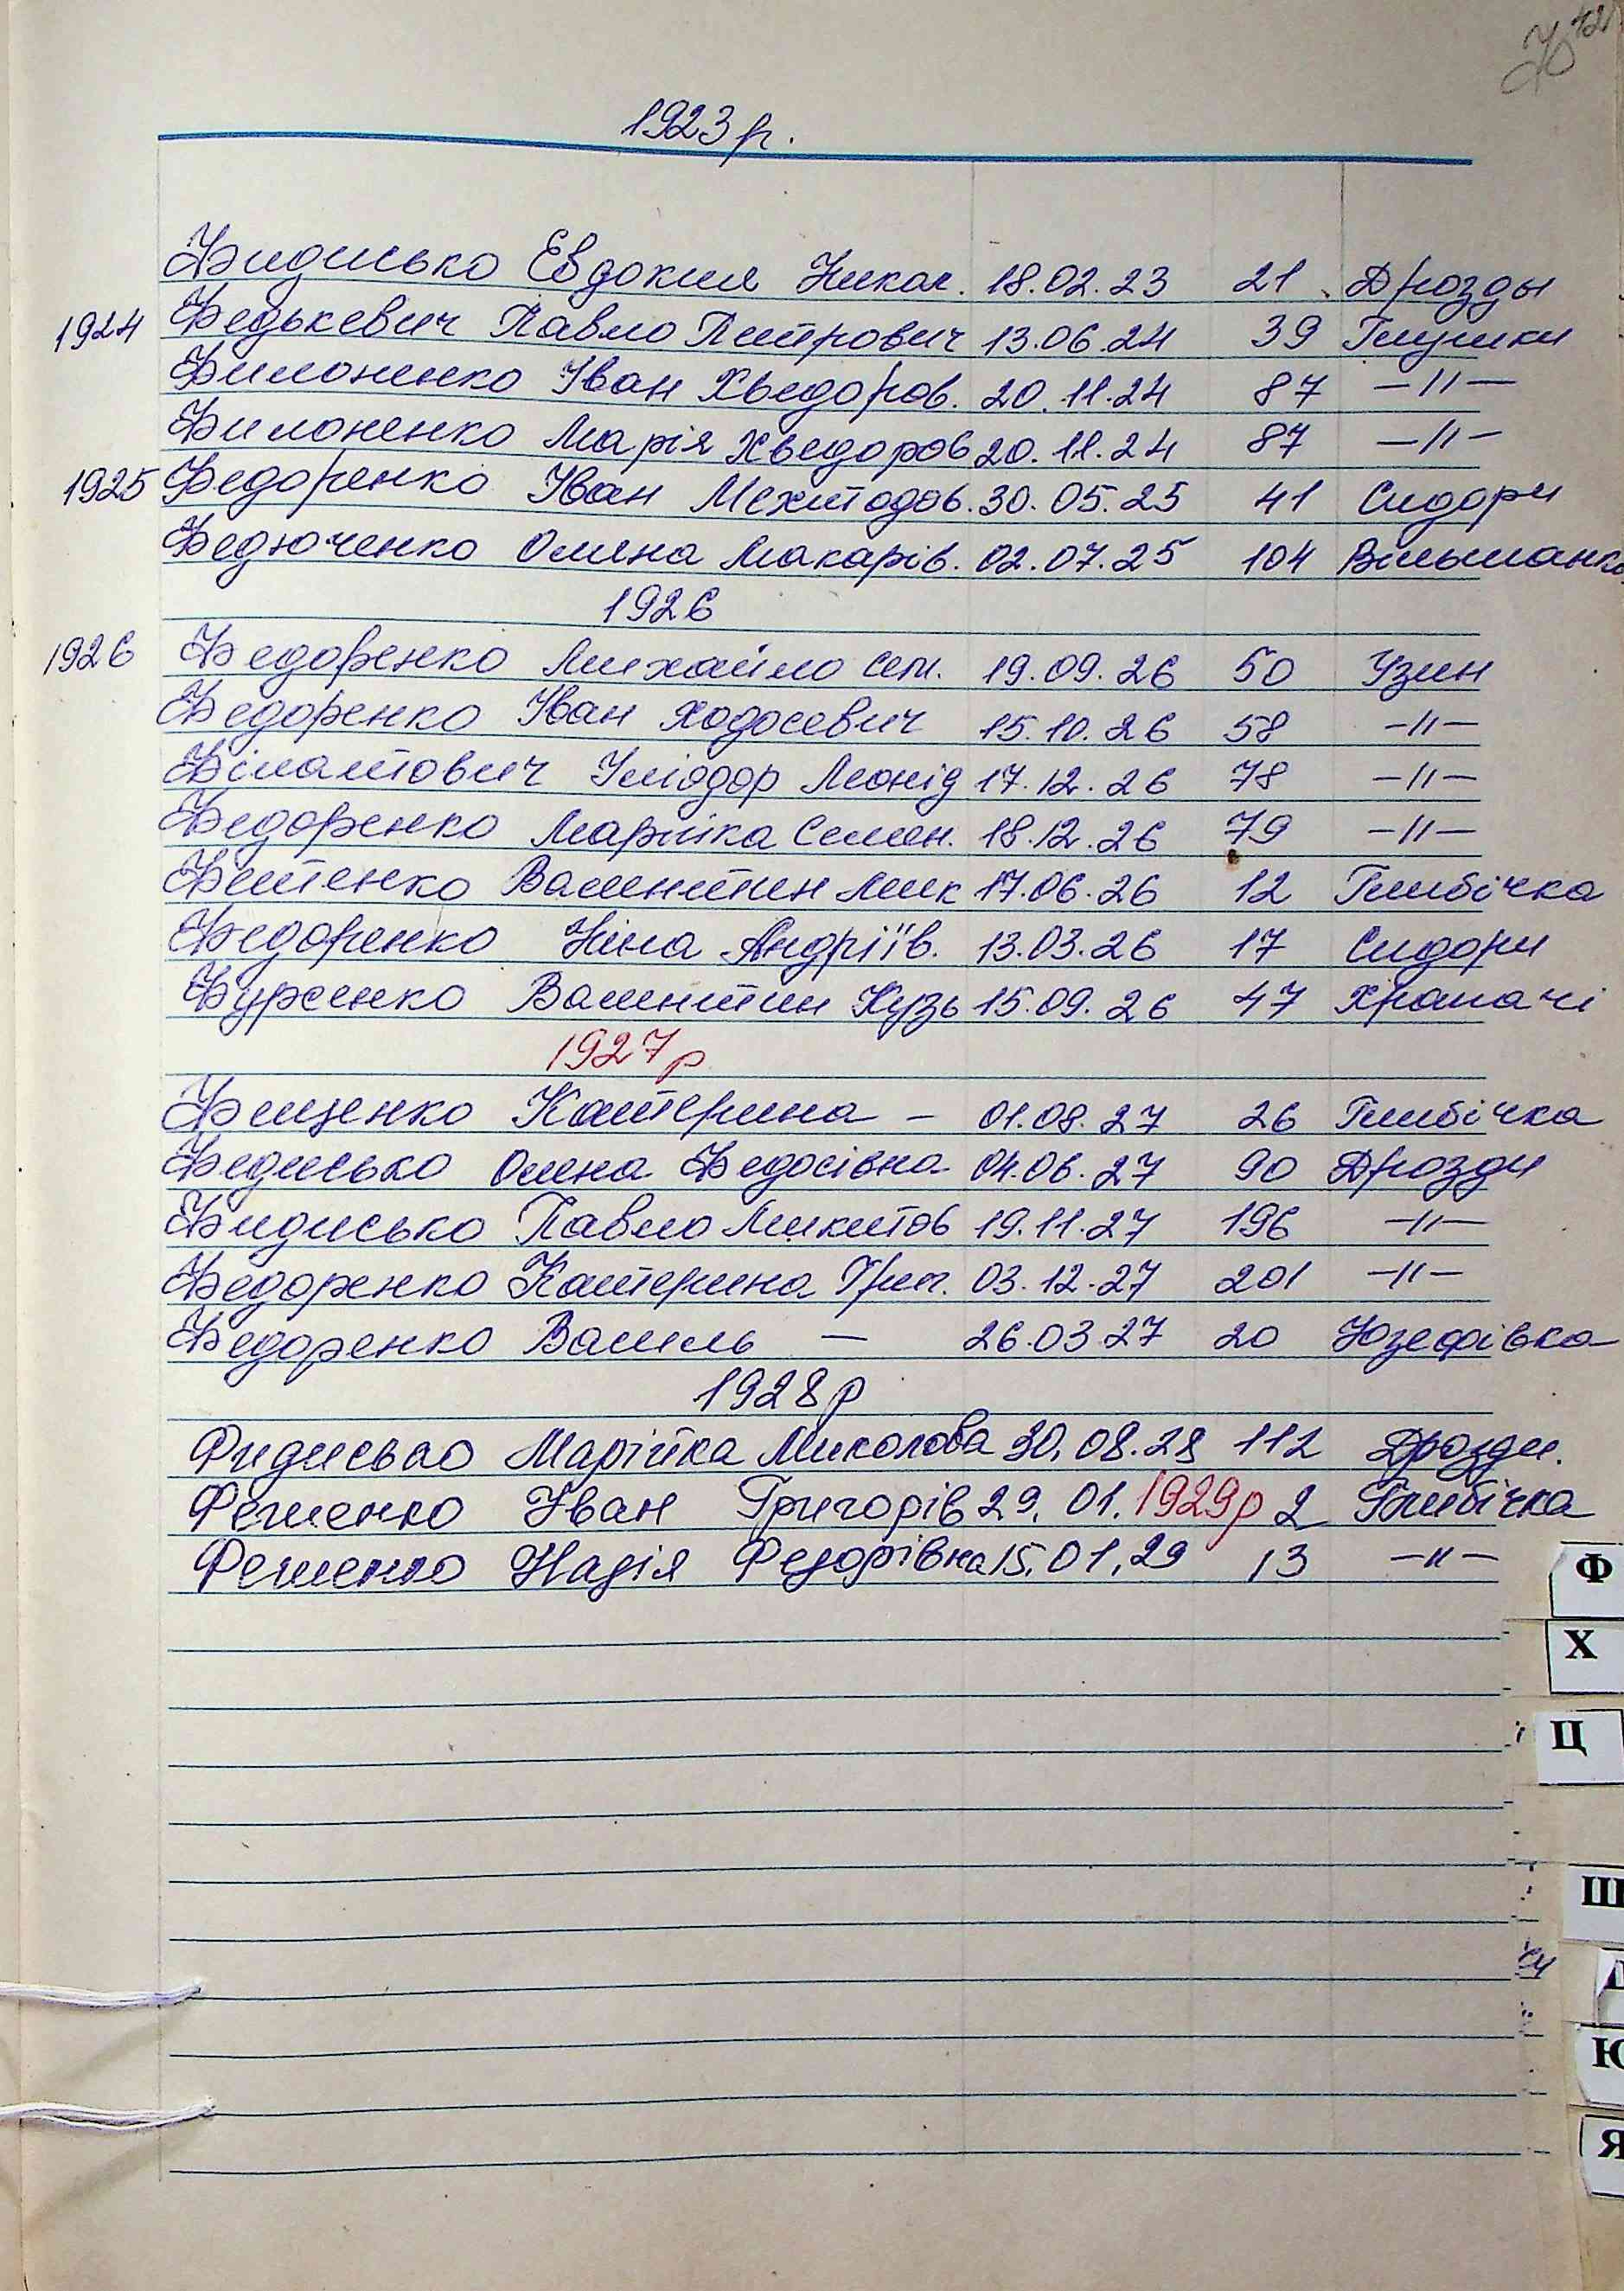 1923 р.
Фидисько Евдокия Никол. 18.02.23 21 Дрозды
1924 Федькевич Павло Питрович 13.06.24 39 Глушки
Филоненко Іван Хьведоров. 20.11.24 87 -"-
Филоненко Марія Хьведоров 20.11.24 87 -"-
1925 Федоренко Іван Мехитодов. 30.05.25 41 Сидори
Федюченко Олина Макарів. 02.07.25 104 Вільшанка
1926
1926 Федоренко Михайло Сем. 19.09.26 50 Узин
Федоренко Іван Ходосевич 15.10.26 58 -"-
Філатович Іліодор Леонід 17.12.26 78 -"-
Федоренко Марийка Семен. 18.12.26 79 -"-
Фитенко Валентин Мик 17.06.26 12 Глибічка
Федоренко Ніна Андріїв. 13.03.26 17 Сидори
Фурженко Валентин Кузь 15.09.26 47 Храпачі
1927 р
Фищенко Катерина - 01.08.27 26 Глибічка
Федисько Олена Федосівна 04.06.27 90 Дрозди
Фидисько Павло Микитов 19.11.27 196 -"-
Федоренко Катерина Григ. 03.12.27 201 -"-
Федоренко Василь - 26.03.27 20 Юзефівка
1928 р
Фидисько Марійка Миколова 30.08.28 112 Дрозди.
Фетенко Іван Григорів 29.01.1929р 2 Глибічка
Фетенко Надія Федорівна 15.01.29 13 -"-
Ф
Х
Ц
Ш
Ю
Я